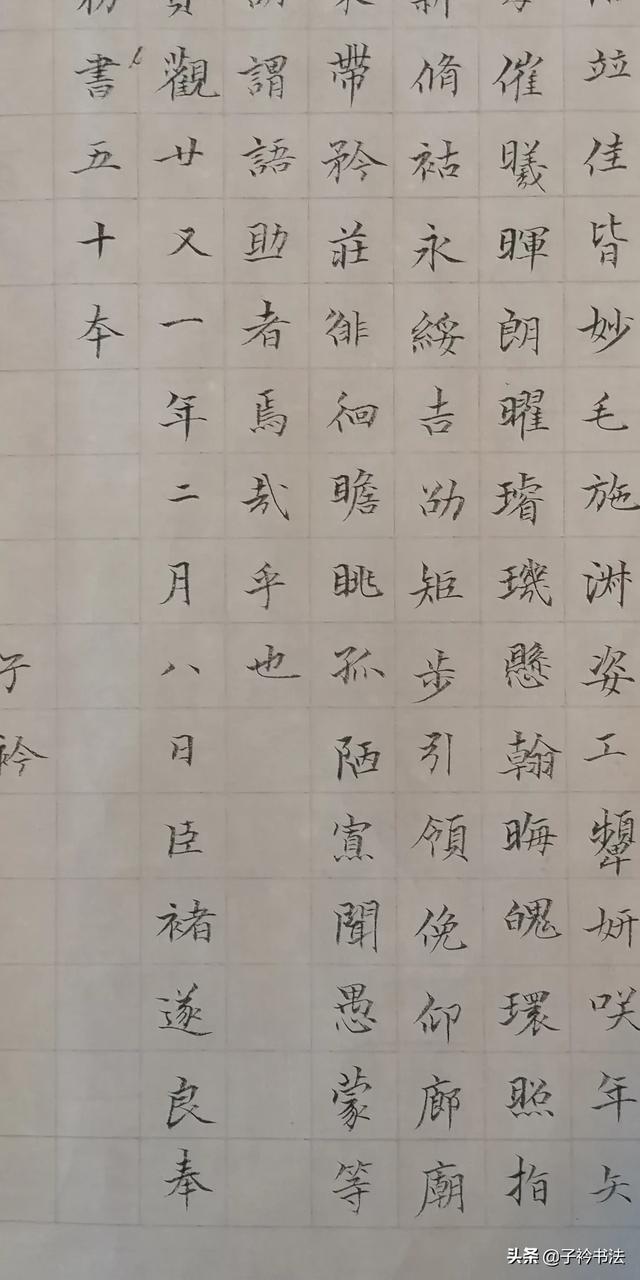 竝佳皆妙毛施淑姿工顰妍咲年矢
催曦暉朗曜璿璣懸翰晦魄環照指
脩祜永綏吉劭矩步引領俛仰廊廟
帶矜莊徘徊瞻眺孤陋寡聞愚蒙等
謂語助者焉哉乎也
觀廿又一年二月八日臣褚遂良奉
書五十本
子衿
头条 @子衿书法